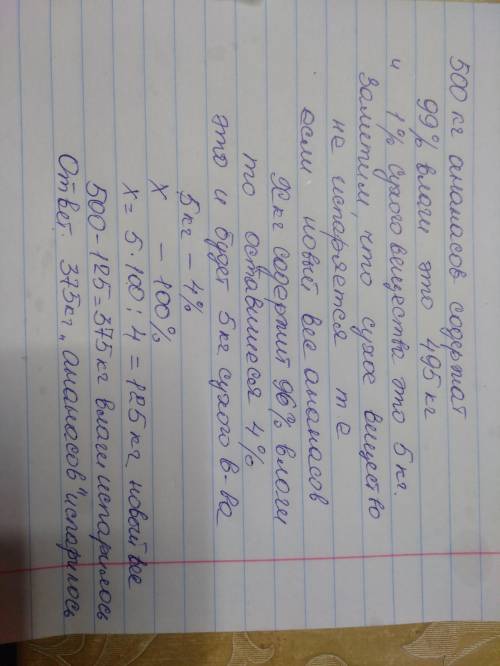 500 кг ананасов содержат
99% влаги это 495 кг
и 1% сухого вещества это 5 кг.
Заметим, что сухое вещество
не испаряется т е
если новый вес ананасов
X кг содержит 96% влаги
то оставшиеся 4%
это и будет 5 кг сухого в-ва
5 кг – 4%
X – 100%
X = 5·100:4 = 125 кг новый вес
500-125=375 кг влаги испарилось
Ответ. 375 кг „ананасов" испарилось